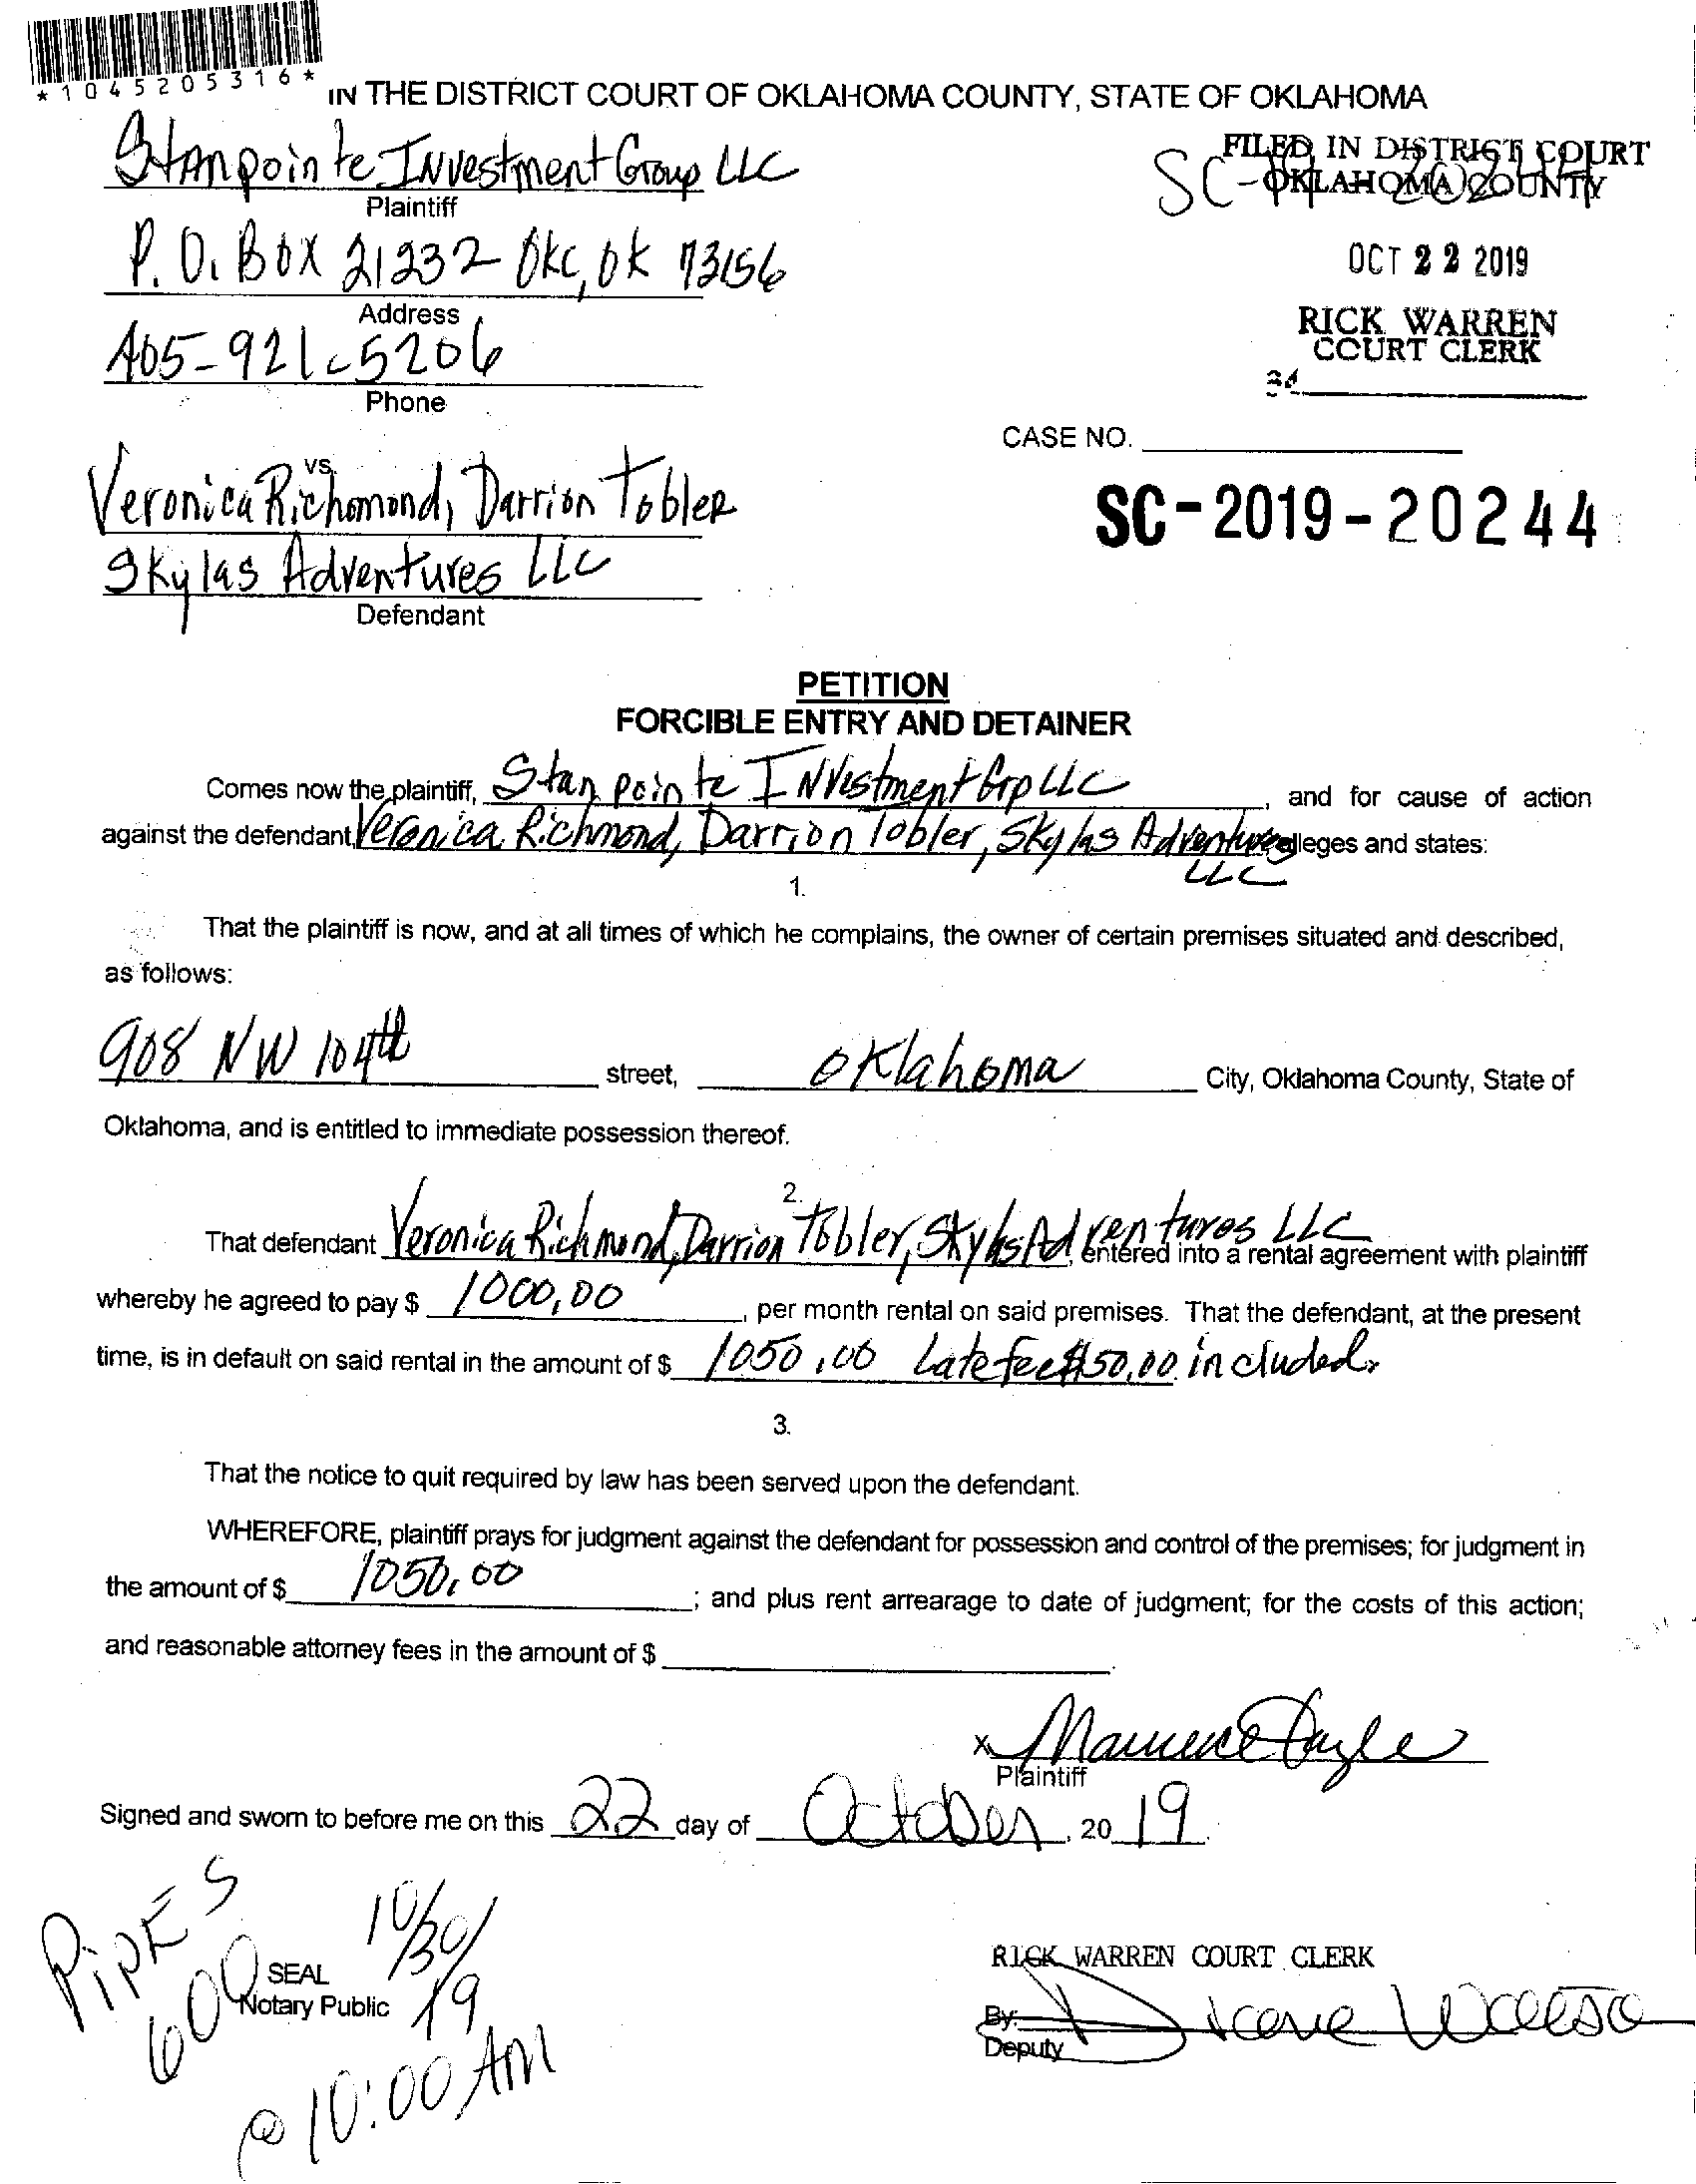 *1045205316*
IN THE DISTRICT COURT OF OKLAHOMA COUNTY, STATE OF OKLAHOMA
Stanpointe Investment Group LLC
Plaintiff
FILED IN DISTRICT COURT
OKLAHOMA COUNTY
SC-19-20244
P.O. Box 21232 OKC, OK 73156
Address
OCT 22 2019
405-921-5206
Phone
RICK WARREN
COURT CLERK
34
CASE NO.
vs.
Veronica Richomond, Darrion Tobler
SC-2019-20244
Skylas Adventures LLC
Defendant
PETITION
FORCIBLE ENTRY AND DETAINER
Comes now the plaintiff, Stanpointe Investment Grp LLC, and for cause of action
against the defendant, Veronica Richmond, Darrion Tobler, Skylas Adventures alleges and states:
LLC
1.
That the plaintiff is now, and at all times of which he complains, the owner of certain premises situated and described,
as follows:
908 NW 104th street, Oklahoma City, Oklahoma County, State of
Oklahoma, and is entitled to immediate possession thereof.
2.
That defendant Veronica Richmond, Darrion Tobler, Skylas Adventures LLC, entered into a rental agreement with plaintiff
whereby he agreed to pay $ 1000.00, per month rental on said premises. That the defendant, at the present
time, is in default on said rental in the amount of $ 1050.00 Late fee $50.00 included.
3.
That the notice to quit required by law has been served upon the defendant.
WHEREFORE, plaintiff prays for judgment against the defendant for possession and control of the premises; for judgment in
the amount of $ 1050.00; and plus rent arrearage to date of judgment; for the costs of this action;
and reasonable attorney fees in the amount of $
X
Plaintiff
Signed and sworn to before me on this 22 day of October, 2019.
PIPES
600
10/30/19
@ 10:00 AM
SEAL
Notary Public
RICK WARREN COURT CLERK
By:
Deputy